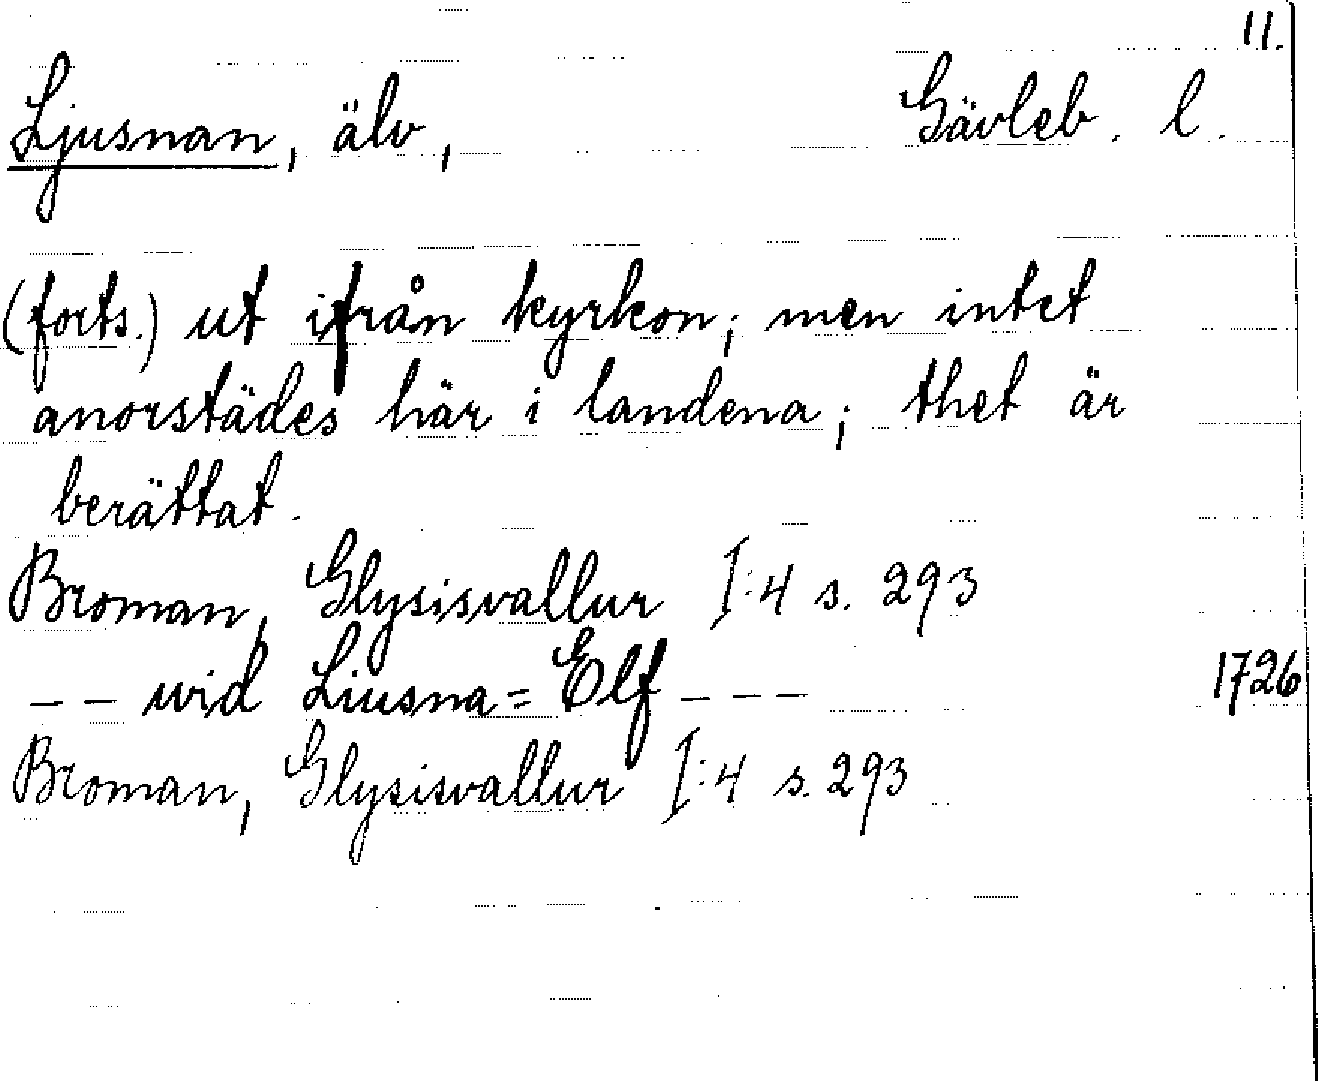 11.
Ljusnan, älv, Gävleb. l.
(forts.) ut ifrån kyrkon; men intet
anorstädes här i landena; thet är
berättat.
Broman, Glysisvallur I:4 s. 293
-- wid Liusna=Elf --- 1726
Broman, Glysisvallur I:4 s. 293